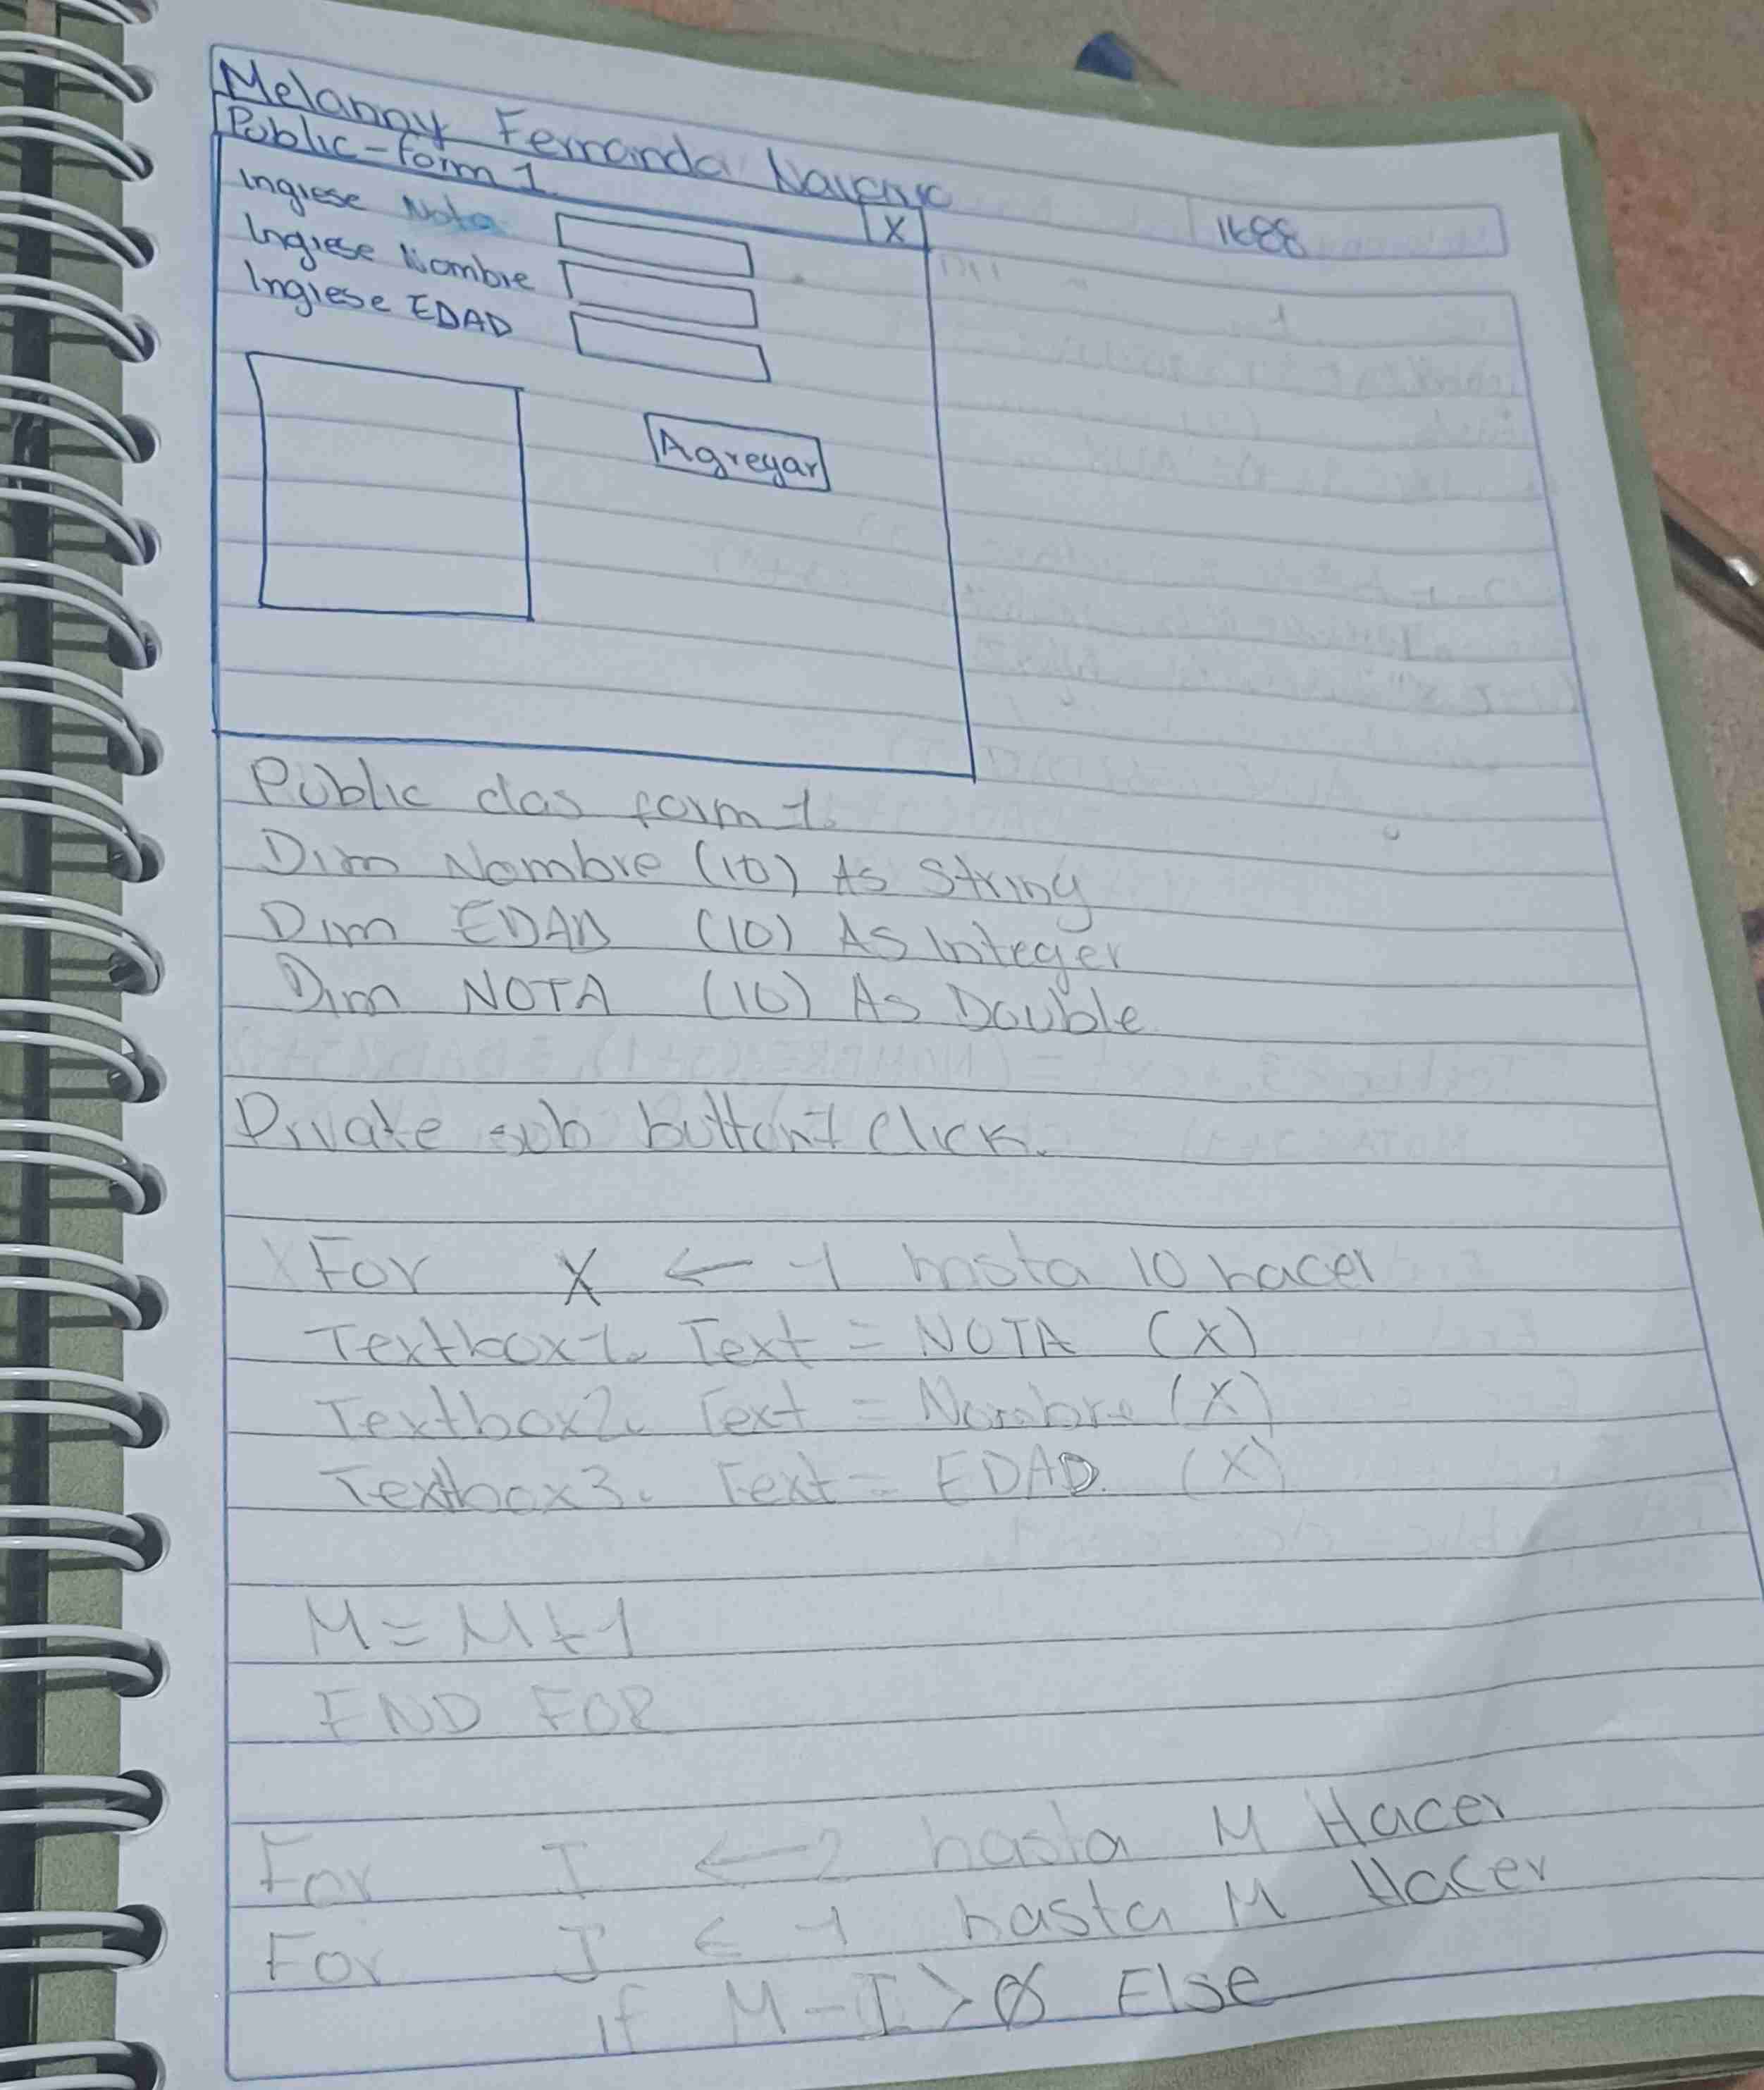 Melanny Fernanda
Public-form 1
X
1688
Ingrese Nota
Ingrese Nombre
Ingrese EDAD
Agregar
Public clas form 1.
Dim Nombre (10) As String
Dim EDAD (10) As Integer
Dim NOTA (10) As Double
Private sub button1 Click.
For X ← 1 hasta 10 hacer
Textbox1. Text = NOTA (X)
Textbox2. Text = Nombre (X)
Textbox3. Text = EDAD. (X)
M = M + 1
END FOR
For I ← 2 hasta M Hacer
For J ← 1 hasta M Hacer
if M - I > 0 Else